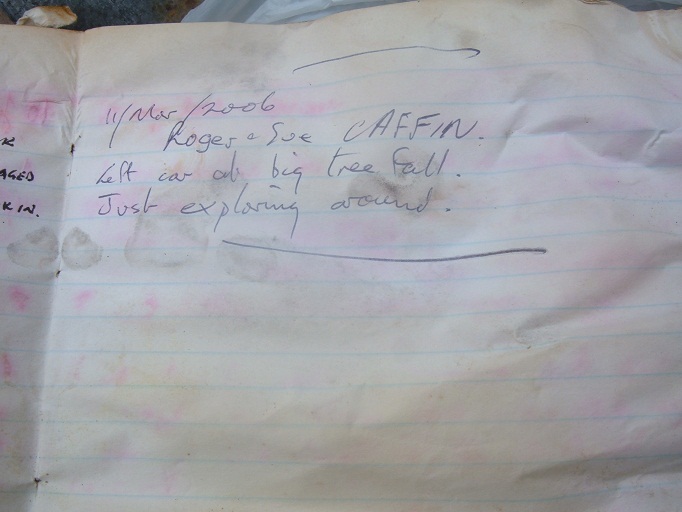 11/Mar/2006
Roger & Sue CAFFIN.
AGED
Left car at big tree fall.
KIN.
Just exploring around.